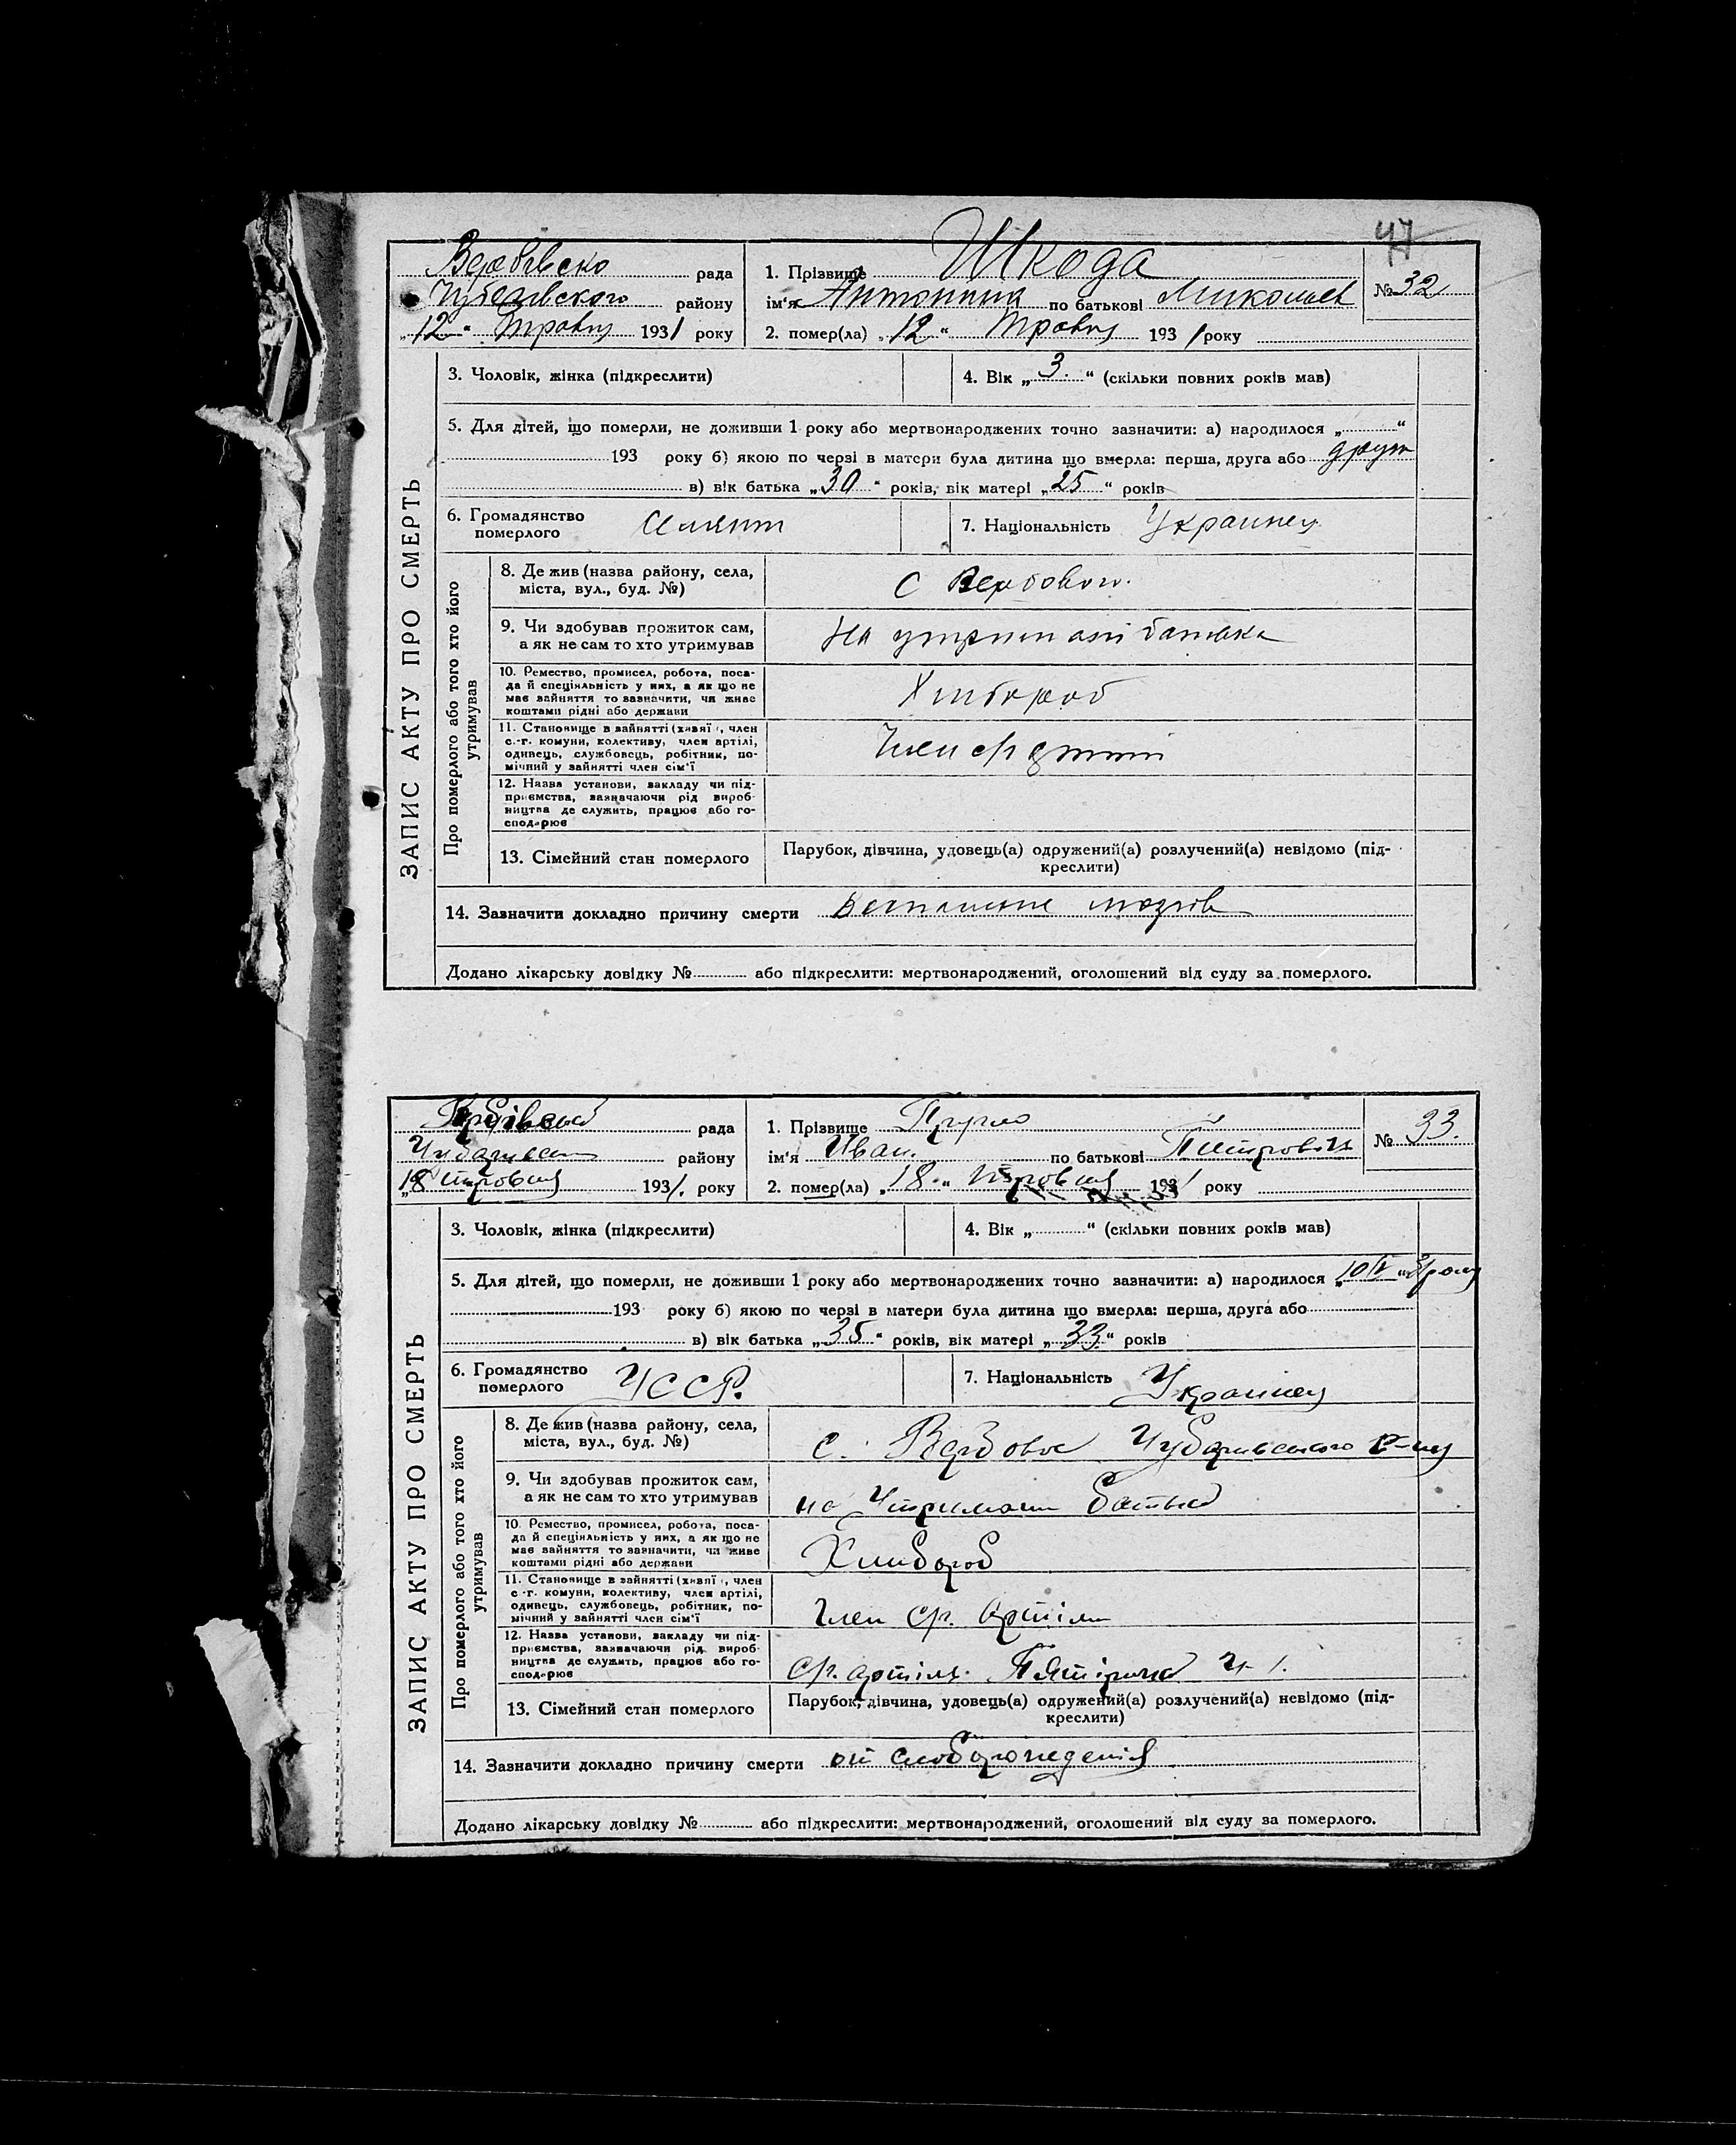 47
рада
1. Прізвище Шкода
№ 32
району
ім'я Антонина по батькові Миколаев
„12“ Травня 1931 року
2. помер(ла) „12“ Травня 1931 року
ЗАПИС АКТУ ПРО СМЕРТЬ
3. Чоловік, жінка (підкреслити)
4. Вік „3.“ (скільки повних років мав)
5. Для дітей, що померли, не доживши 1 року або мертвонароджених точно зазначити: а) народилося „ “
193 року б) якою по черзі в матери була дитина що вмерла: перша, друга або
в) вік батька „30“ років, вік матері „25“ років
6. Громадянство
померлого
7. Національність Украинец
Про померлого або того хто його
утримував
8. Де жив (назва району, села,
міста, вул., буд. №)
с Вербового.
9. Чи здобував прожиток сам,
а як не сам то хто утримував
На утриманi батька
10. Ремество, промисел, робота, поса-
да й спеціяльність у них, а як що не
має зайняття то зазначити, чи живе
коштами рідні або держави
Хлибороб
11. Становище в зайнятті (хазяї, член
с.-г. комуни, колективу, член артілі,
одинець, службовець, робітник, по-
мічний у зайнятті член сім'ї
Член
12. Назва установи, закладу чи під-
приємства, зазначаючи рід вироб-
ництва де служить, працює або го-
сподарює
13. Сімейний стан померлого
Парубок, дівчина, удовець(а) одружений(а) розлучений(а) невідомо (під-
креслити)
14. Зазначити докладно причину смерти мозгів
Додано лікарську довідку № або підкреслити: мертвонароджений, оголошений від суду за померлого.
рада
1. Прізвище
№ 33.
району
ім'я Иван. по батькові Петрович
„18 травня 1931. року
2. помер(ла) „18.“ травня 1931 року
ЗАПИС АКТУ ПРО СМЕРТЬ
3. Чоловік, жінка (підкреслити)
4. Вік „ “ (скільки повних років мав)
5. Для дітей, що померли, не доживши 1 року або мертвонароджених точно зазначити: а) народилося „10 IV“ 31 року
193 року б) якою по черзі в матери була дитина що вмерла: перша, друга або
в) вік батька „35“ років, вік матері „33“ років
6. Громадянство
померлого
УССР.
7. Національність Украинец
Про померлого або того хто його
утримував
8. Де жив (назва району, села,
міста, вул., буд. №)
с. Вербове Чубарівського р-ну
9. Чи здобував прожиток сам,
а як не сам то хто утримував
на Утримани батька
10. Ремество, промисел, робота, поса-
да й спеціяльність у них, а як що не
має зайняття то зазначити, чи живе
коштами рідні або держави
Хлибороб
11. Становище в зайнятті (хазяї, член
с.-г. комуни, колективу, член артілі,
одинець, службовець, робітник, по-
мічний у зайнятті член сім'ї
Член ср. Артіли
12. Назва установи, закладу чи під-
приємства, зазначаючи рід вироб-
ництва де служить, працює або го-
сподарює
ср. артіль. Пятірічка Ч. 1.
13. Сімейний стан померлого
Парубок, дівчина, удовець(а) одружений(а) розлучений(а) невідомо (під-
креслити)
14. Зазначити докладно причину смерти от слаборождения
Додано лікарську довідку № або підкреслити: мертвонароджений, оголошений від суду за померлого.